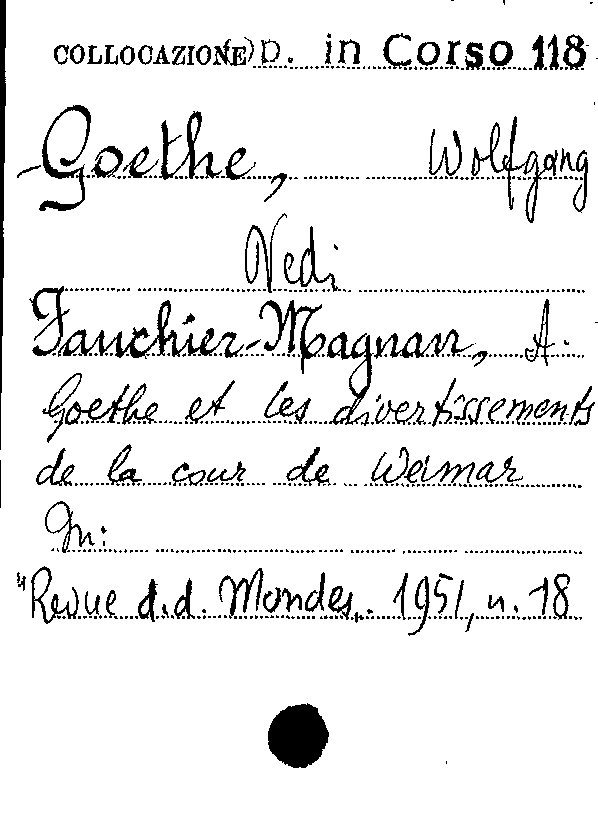 COLLOCAZIONE P. in Corso 118
Goethe, Wolfgang
Vedi
Fauchier-Magnan, A.
Goethe et les divertissements
de la cour de Weimar
In:
"Revue d. d. Mondes„. 1951, n. 18